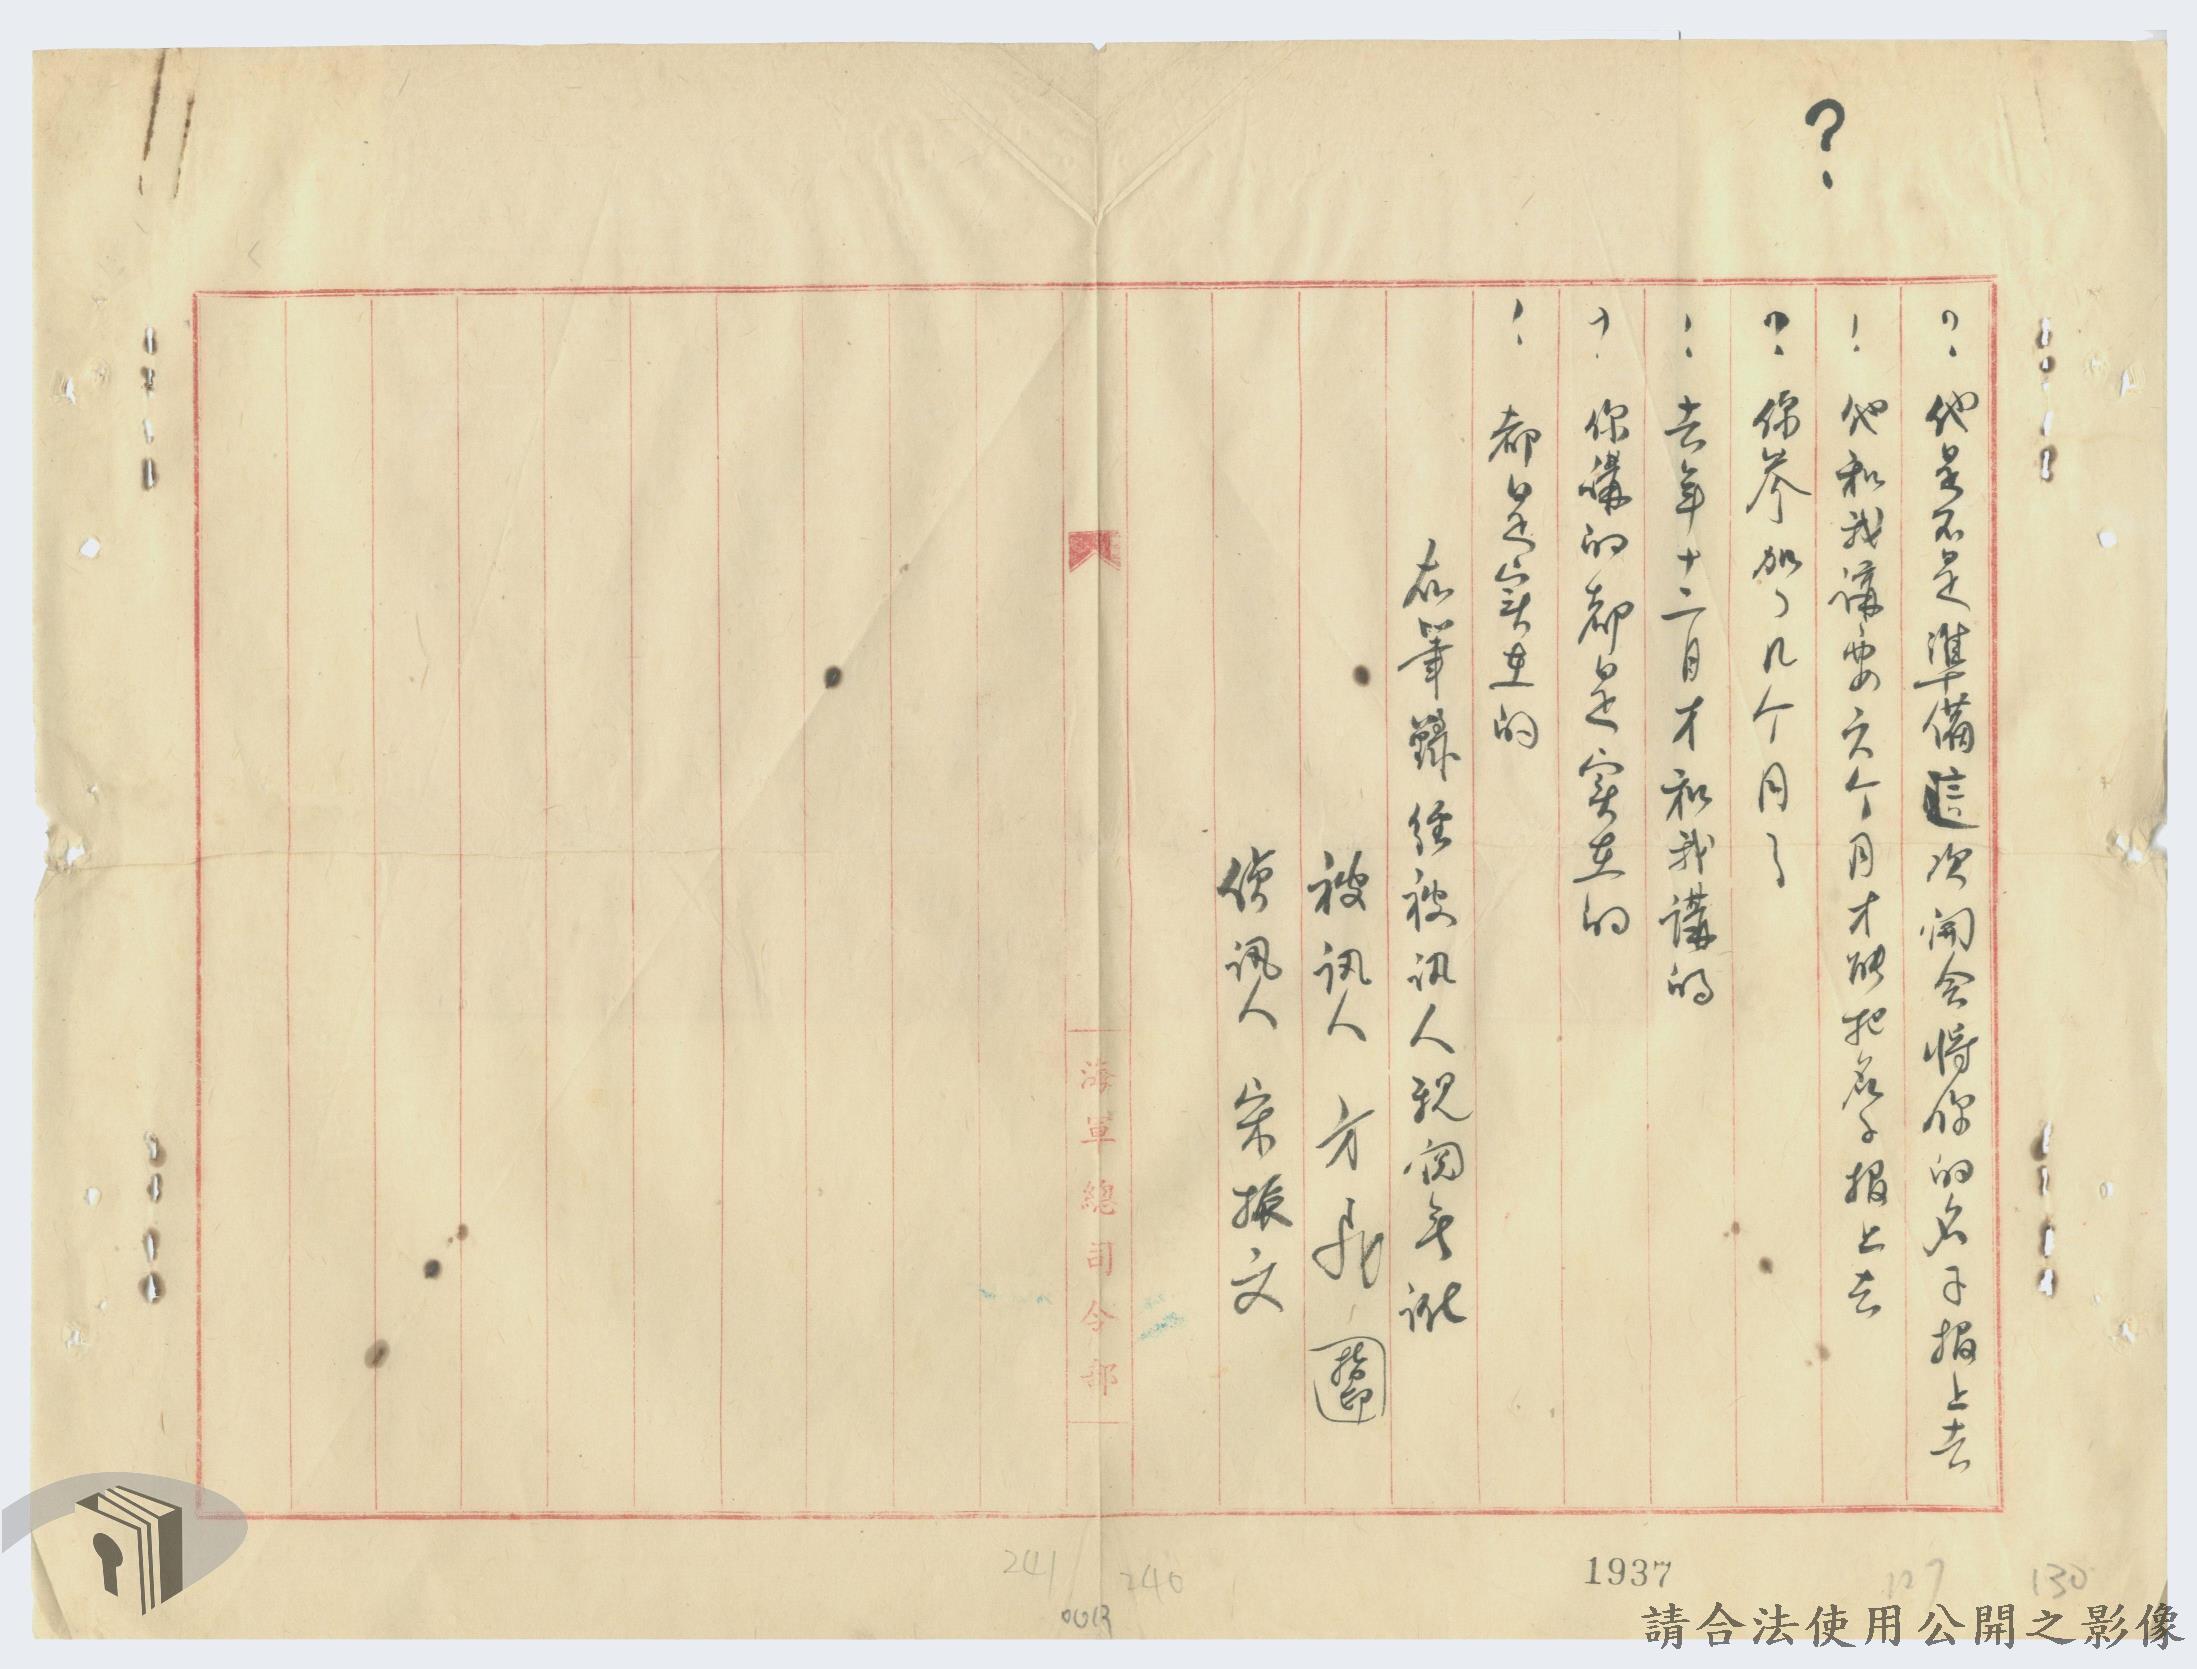 ?
?他是不是準備這次開会將你的名子報上去
!他和我講要六个月才能把名子報上去
?你参加了几个月了
!去年十二月才和我講的
?你講的都是实在的
!都是实在的
右筆録经被訊人親閲無訛
被訊人 方 指印
偵訊人 宋振文
海軍總司令部
1937
241
240
127
130
請合法使用公開之影像